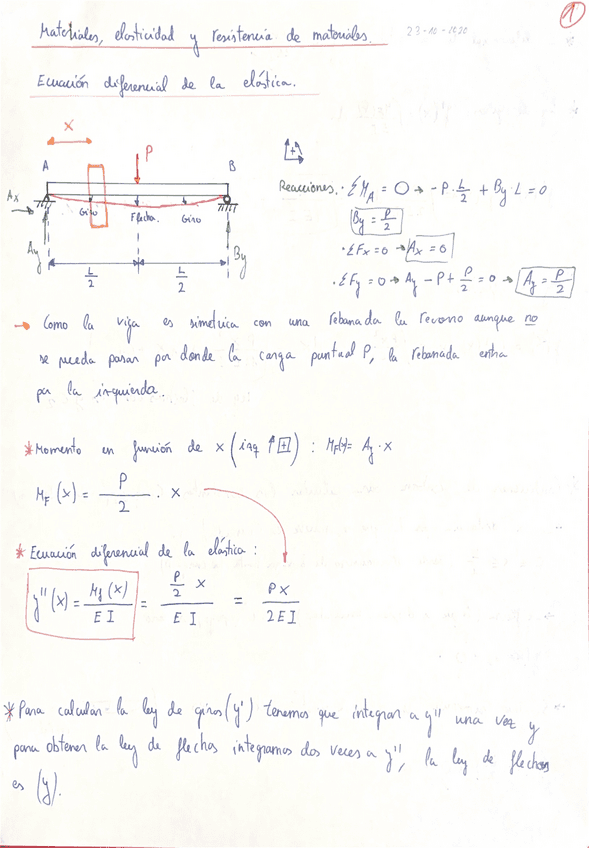 1
Materiales, elasticidad y resistencia de materiales. 23-10-1920
Ecuación diferencial de la elástica.
x
P
A B
Reacciones. · ΣM_A = 0 → -P · L/2 + By · L = 0
Ax
Giro Flecha. Giro
By = P/2
· ΣFx = 0 → Ax = 0
Ay By
L/2 L/2
· ΣFy = 0 → Ay - P + P/2 = 0 → Ay = P/2
→ Como la viga es simetrica con una rebanada la recorro aunque no
se pueda pasar por donde la carga puntual P, la rebanada entra
por la izquierda.
* Momento en función de x (izq ↑ +) : MF(x) = Ay · x
MF (x) = P/2 · x
* Ecuación diferencial de la elástica :
y''(x) = Mf (x)/EI = P/2 x/EI = PX/2EI
* Para calcular la ley de giros (y') tenemos que integrar a y'' una vez y
para obtener la ley de flechas integramos dos veces a y'', la ley de flechas
es (y).